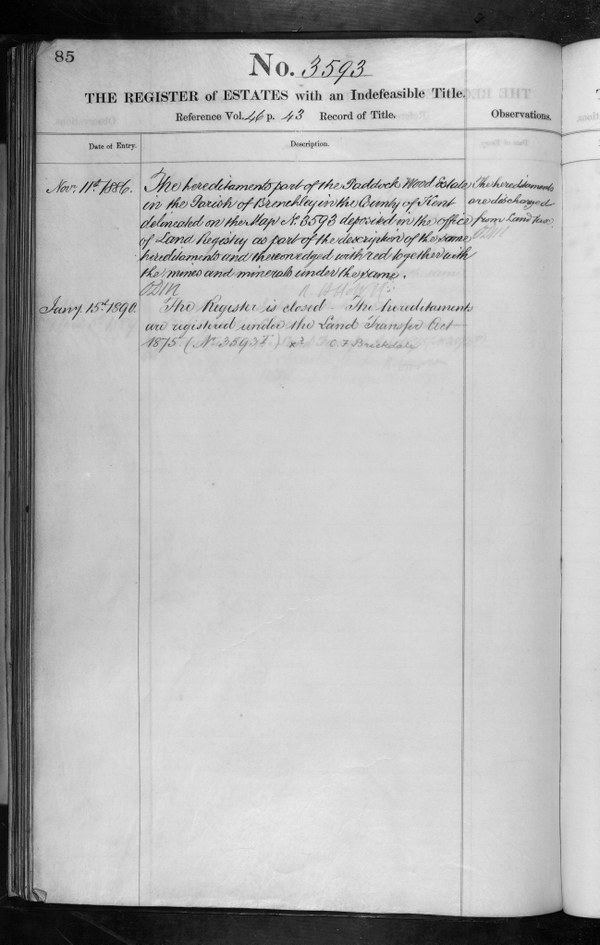 85
No. 3593
THE REGISTER of ESTATES with an Indefeasible Title.
Reference Vol. 46 p. 43 Record of Title.
Observations.
Date of Entry.
Description.
Nov. 11th 1886.
The hereditaments part of the Paddock Wood Estate
in the Parish of Brenchley in the County of Kent
delineated on the Map No. 3593 deposited in the office
of Land Registry as part of the description of the same
hereditaments and thereon edged with red together with
the mines and minerals under the same.
The hereditaments
are discharged
from Land Tax
Jany. 15th 1890.
The Register is closed - The hereditaments
are registered under the Land Transfer Act
1875 (No. 3593 ) C F Brickdale